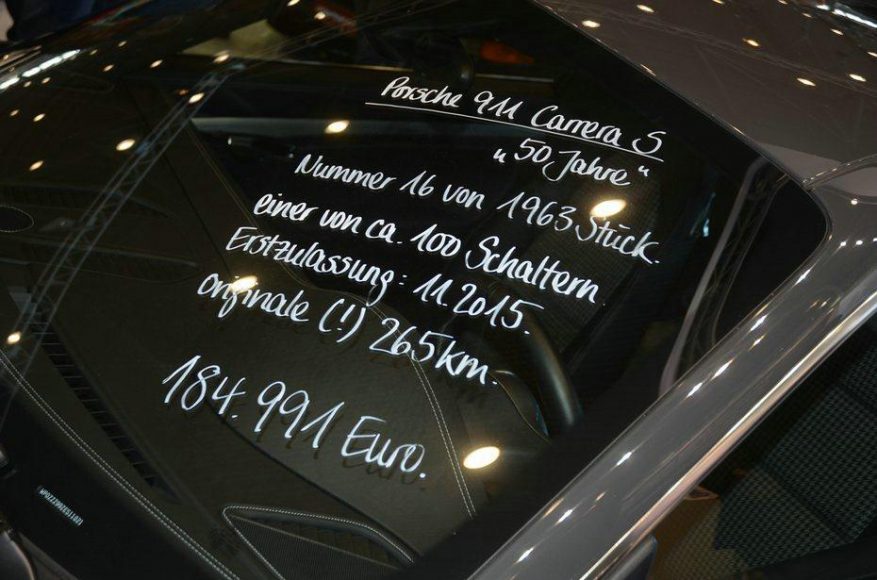 Porsche 911 Carrera S
„50 Jahre"
Nummer 16 von 1963 Stück.
einer von ca. 100 Schaltern
Erstzulassung: 11.2015.
originale (!) 265km.
184.991 Euro.